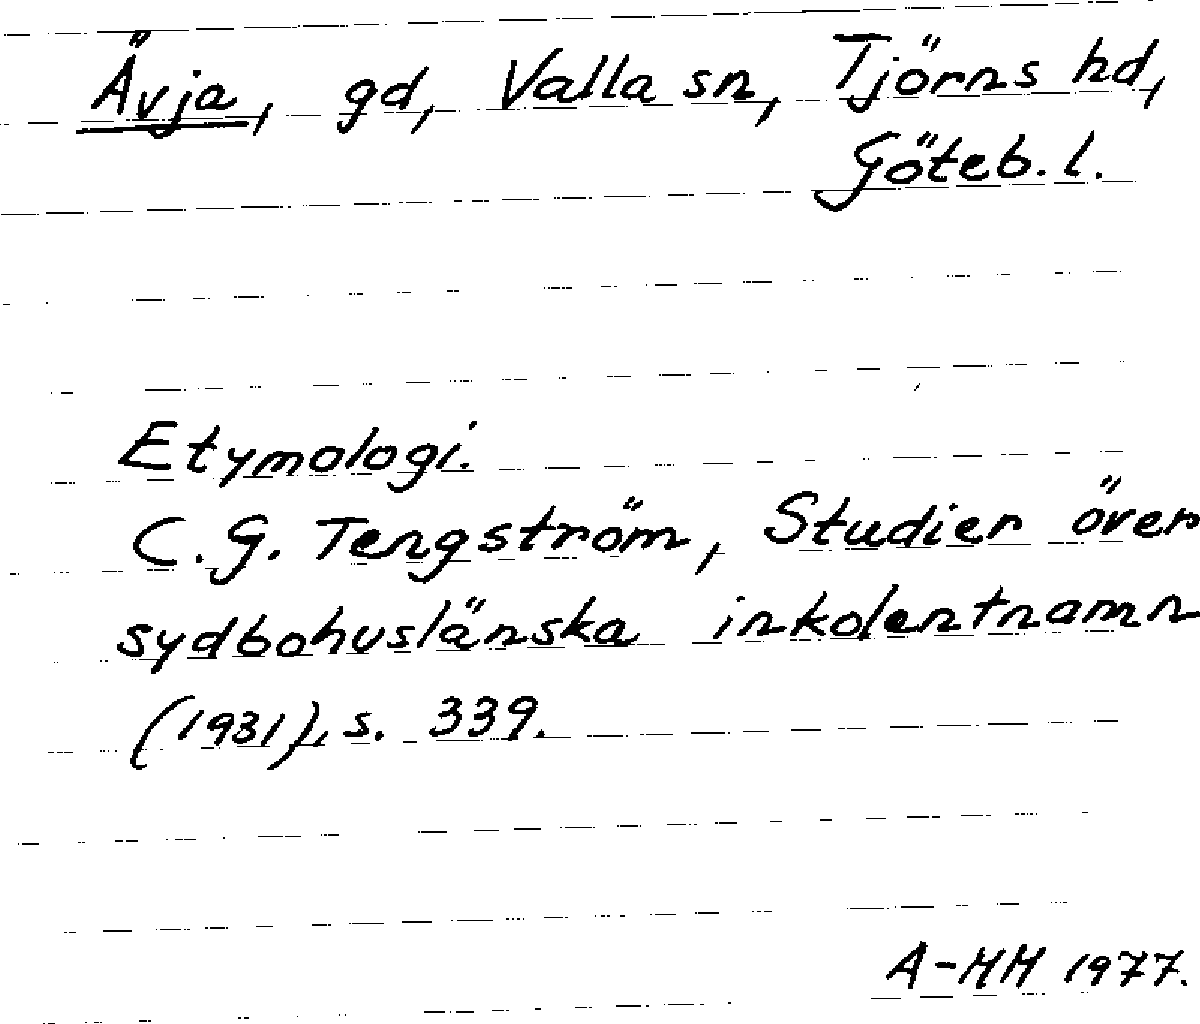 Ävja, gd, Valla sn, Tjörns hd,
Göteb. l.
Etymologi.
C. G. Tengström, Studier över
sydbohuslänska inkolentnamn
(1931), s. 339.
A-MM 1977.